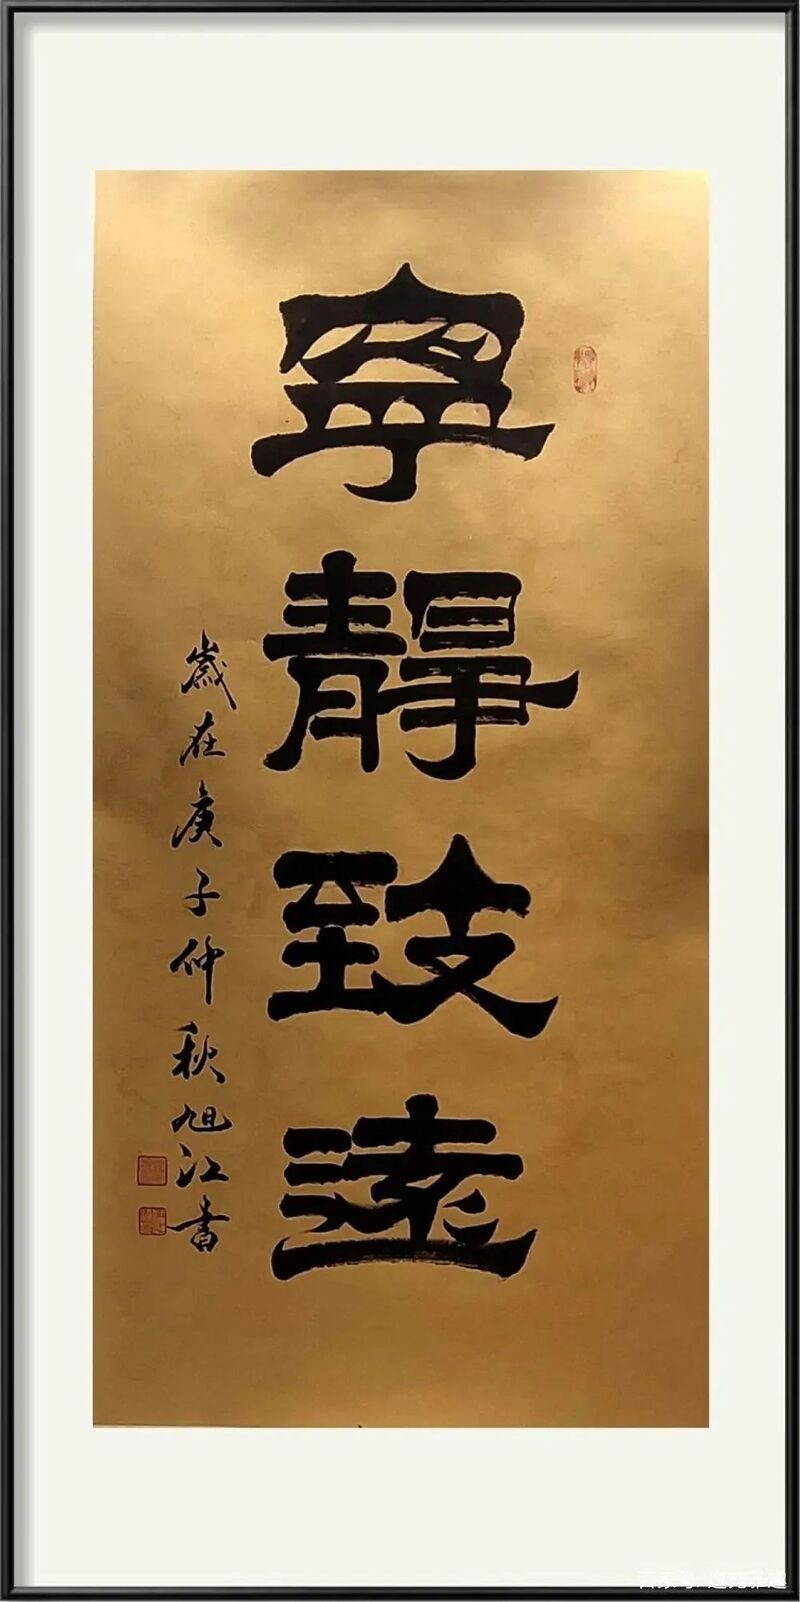 寧靜致遠
歲在庚子仲秋旭江書
百家号